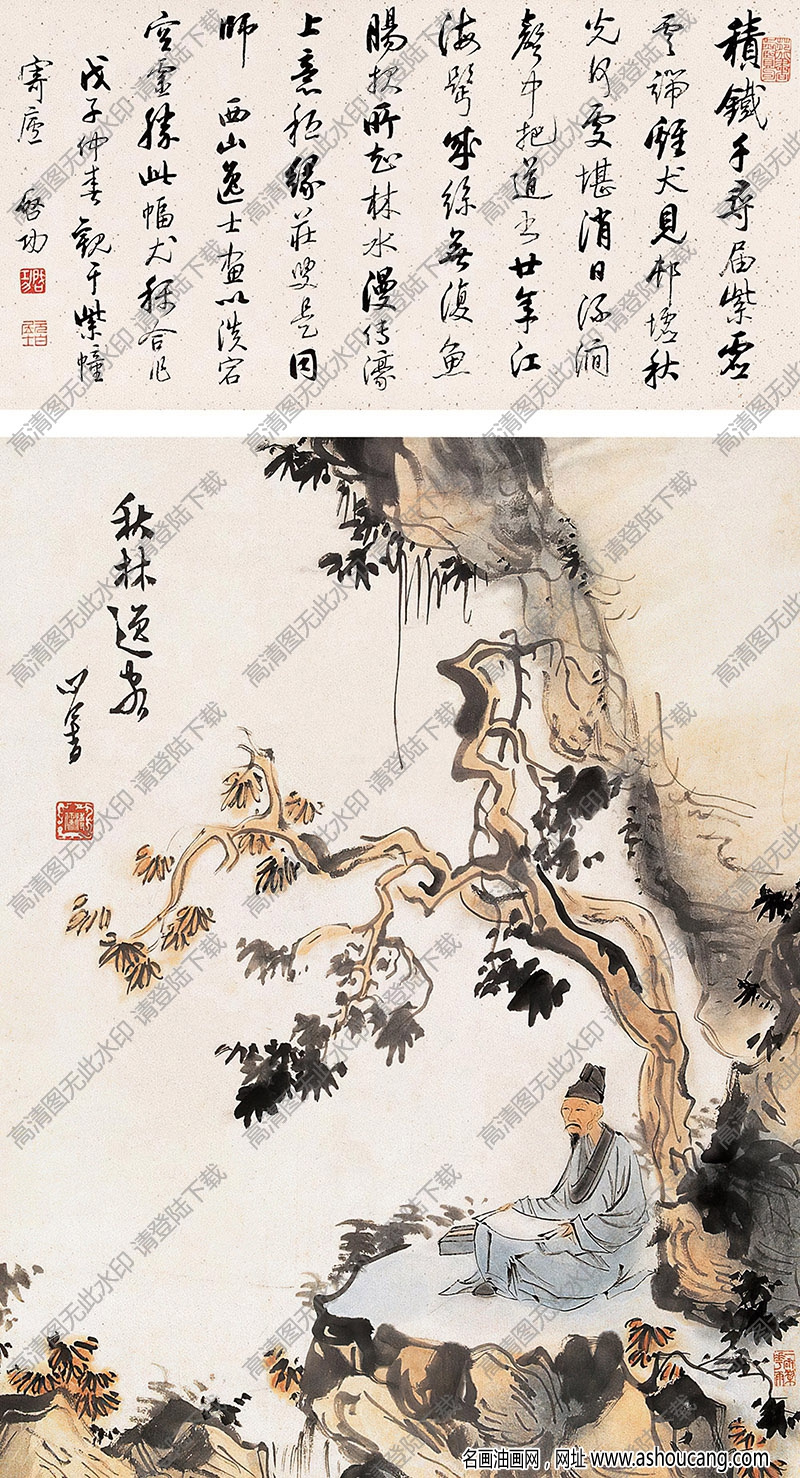 積鐵千尋屆紫虛
雲端雞犬見邨墟秋
光何處堪消日流澗
聲中把道書廿年江
海鬢成絲無復魚
腸報所知林水漫傳濠
上意秖緣莊叟是同
師 西山逸士畫以淡宕
空靈勝此幅尤稱合作
戊子仲春觀于紫幢
寄廬 啓功
秋林逸客
心畬
高清图无此水印 请登陆下载
名画油画网，网址 www.ashoucang.com